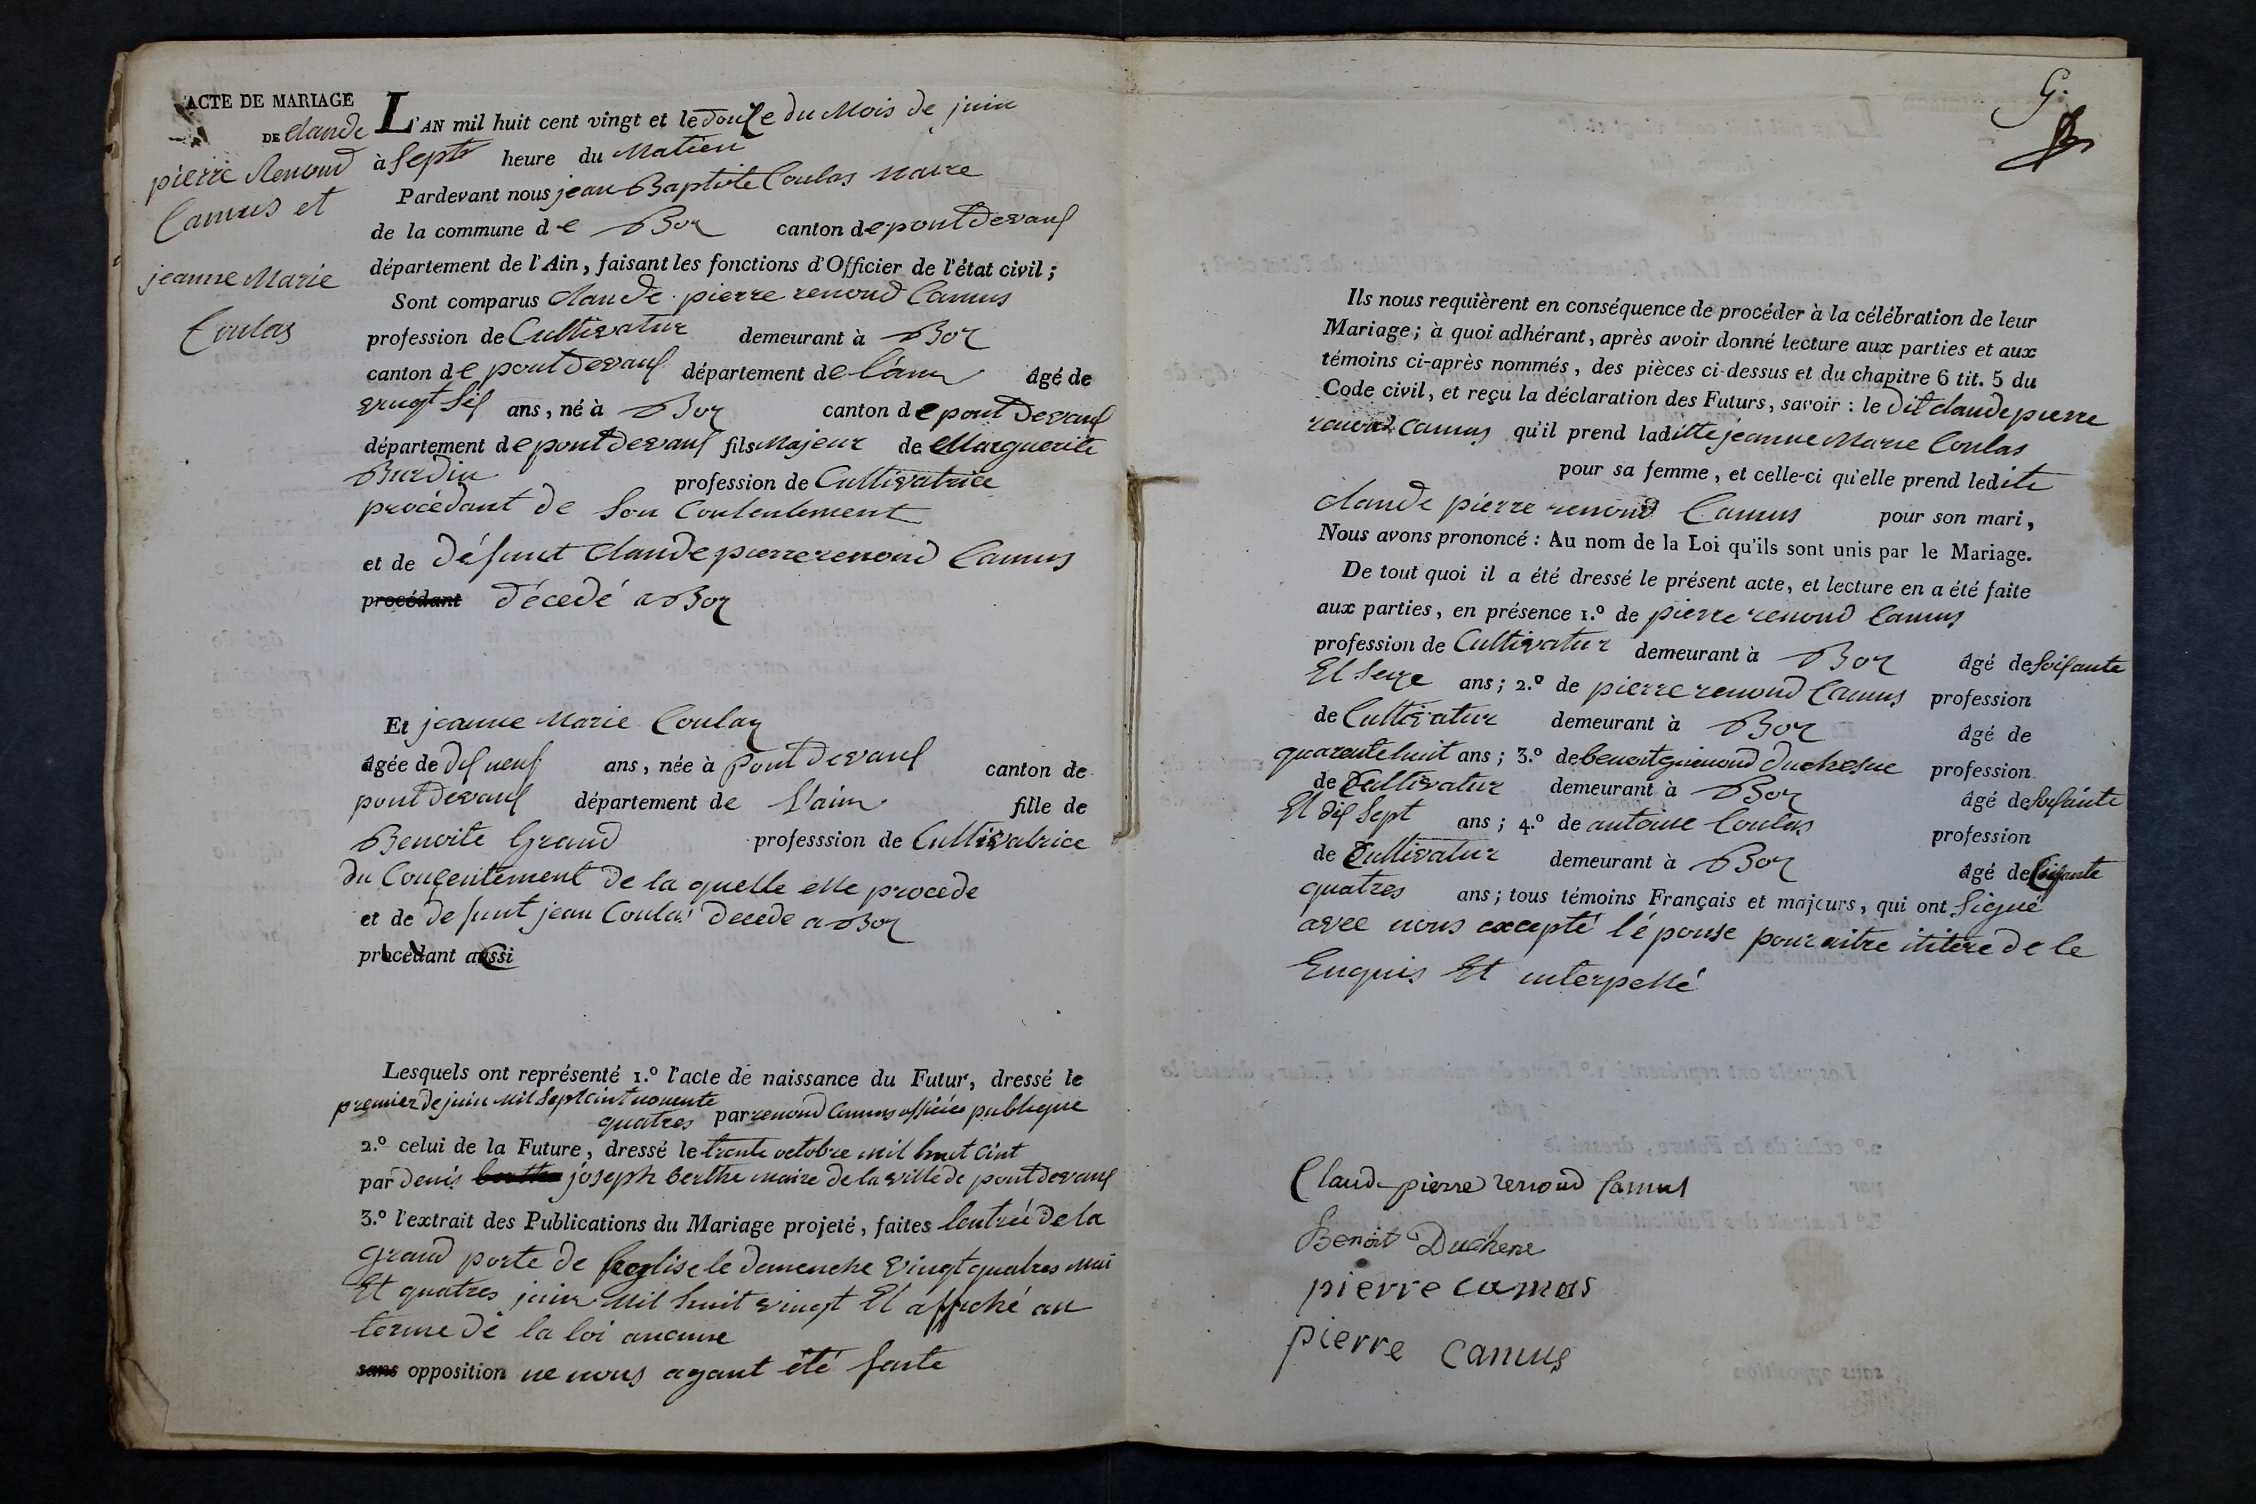 ACTE DE MARIAGE
DE claude
pierre Renoud
Camus et
jeanne Marie
Coulas
L'AN mil huit cent vingt et le douze du Mois de juin
à Sept heure du Matien
Pardevant nous jean Baptiste Coulas Maire
de la commune de Boz canton de pontdevaux
département de l'Ain, faisant les fonctions d'Officier de l'état civil;
Sont comparus claude pierre renoud Camus
profession de Cultivatur demeurant à Boz
canton de pontdevaux département de l'ain âgé de
vingt six ans, né à Boz canton de pontdevaux
département de pontdevaux fils Majeur de Marguerite
Burdin profession de Cultivatrice
procédant de Son Contentement
et de défunt claude pierre renoud Camus
procédant décedé a Boz
Et jeanne Marie Coulas
âgée de dix neuf ans, née à pontdevaux canton de
pontdevaux département de l'ain fille de
Benoite Grand professsion de Cultivatrice
du Conçentement de la quelle elle procede
et de defunt jean Coulas decede a Boz
procédant aussi
Lesquels ont représenté 1.º l'acte de naissance du Futur, dressé le
premier de juin mil Sept cint nonente
quatres par renoud Camus officiée publique
2.º celui de la Future, dressé le trente octobre mil huit cint
par denis joseph berthe maire de la ville de pontdevaux
3.º l'extrait des Publications du Mariage projeté, faites lentrée de la
grand porte de leglise le demenche vingt quatres mai
Et quatres juin Mil huit vingt Et affiché au
terme de la loi aucune
sans opposition ne nous ayant été faite
G.
Ils nous requièrent en conséquence de procéder à la célébration de leur
Mariage; à quoi adhérant, après avoir donné lecture aux parties et aux
témoins ci-après nommés, des pièces ci-dessus et du chapitre 6 tit. 5 du
Code civil, et reçu la déclaration des Futurs, savoir: le dit claude pierre
renoud Camus qu'il prend laditte jeanne Marie Coulas
pour sa femme, et celle-ci qu'elle prend ledite
claude pierre renoud Camus pour son mari,
Nous avons prononcé: Au nom de la Loi qu'ils sont unis par le Mariage.
De tout quoi il a été dressé le présent acte, et lecture en a été faite
aux parties, en présence 1.º de pierre renoud Camus
profession de Cultivatur demeurant à Boz âgé de Soixante
Et Seze ans; 2.º de pierre renoud Camus profession
de Cultivatur demeurant à Boz âgé de
quarentehuit ans; 3.º de benoit guenoud duchesne profession
de Cultivatur demeurant à Boz âgé de Soixante
Et dix Sept ans; 4.º de antoine Coulas profession
de Cultivatur demeurant à Boz âgé de Soixante
quatres ans; tous témoins Français et majeurs, qui ont Signé
avec nous excepté l'épouse pour aitre ititere de le
Enquis Et interpellé
Claude pierre renoud Camus
Benoit Duchene
pierre camus
pierre camus